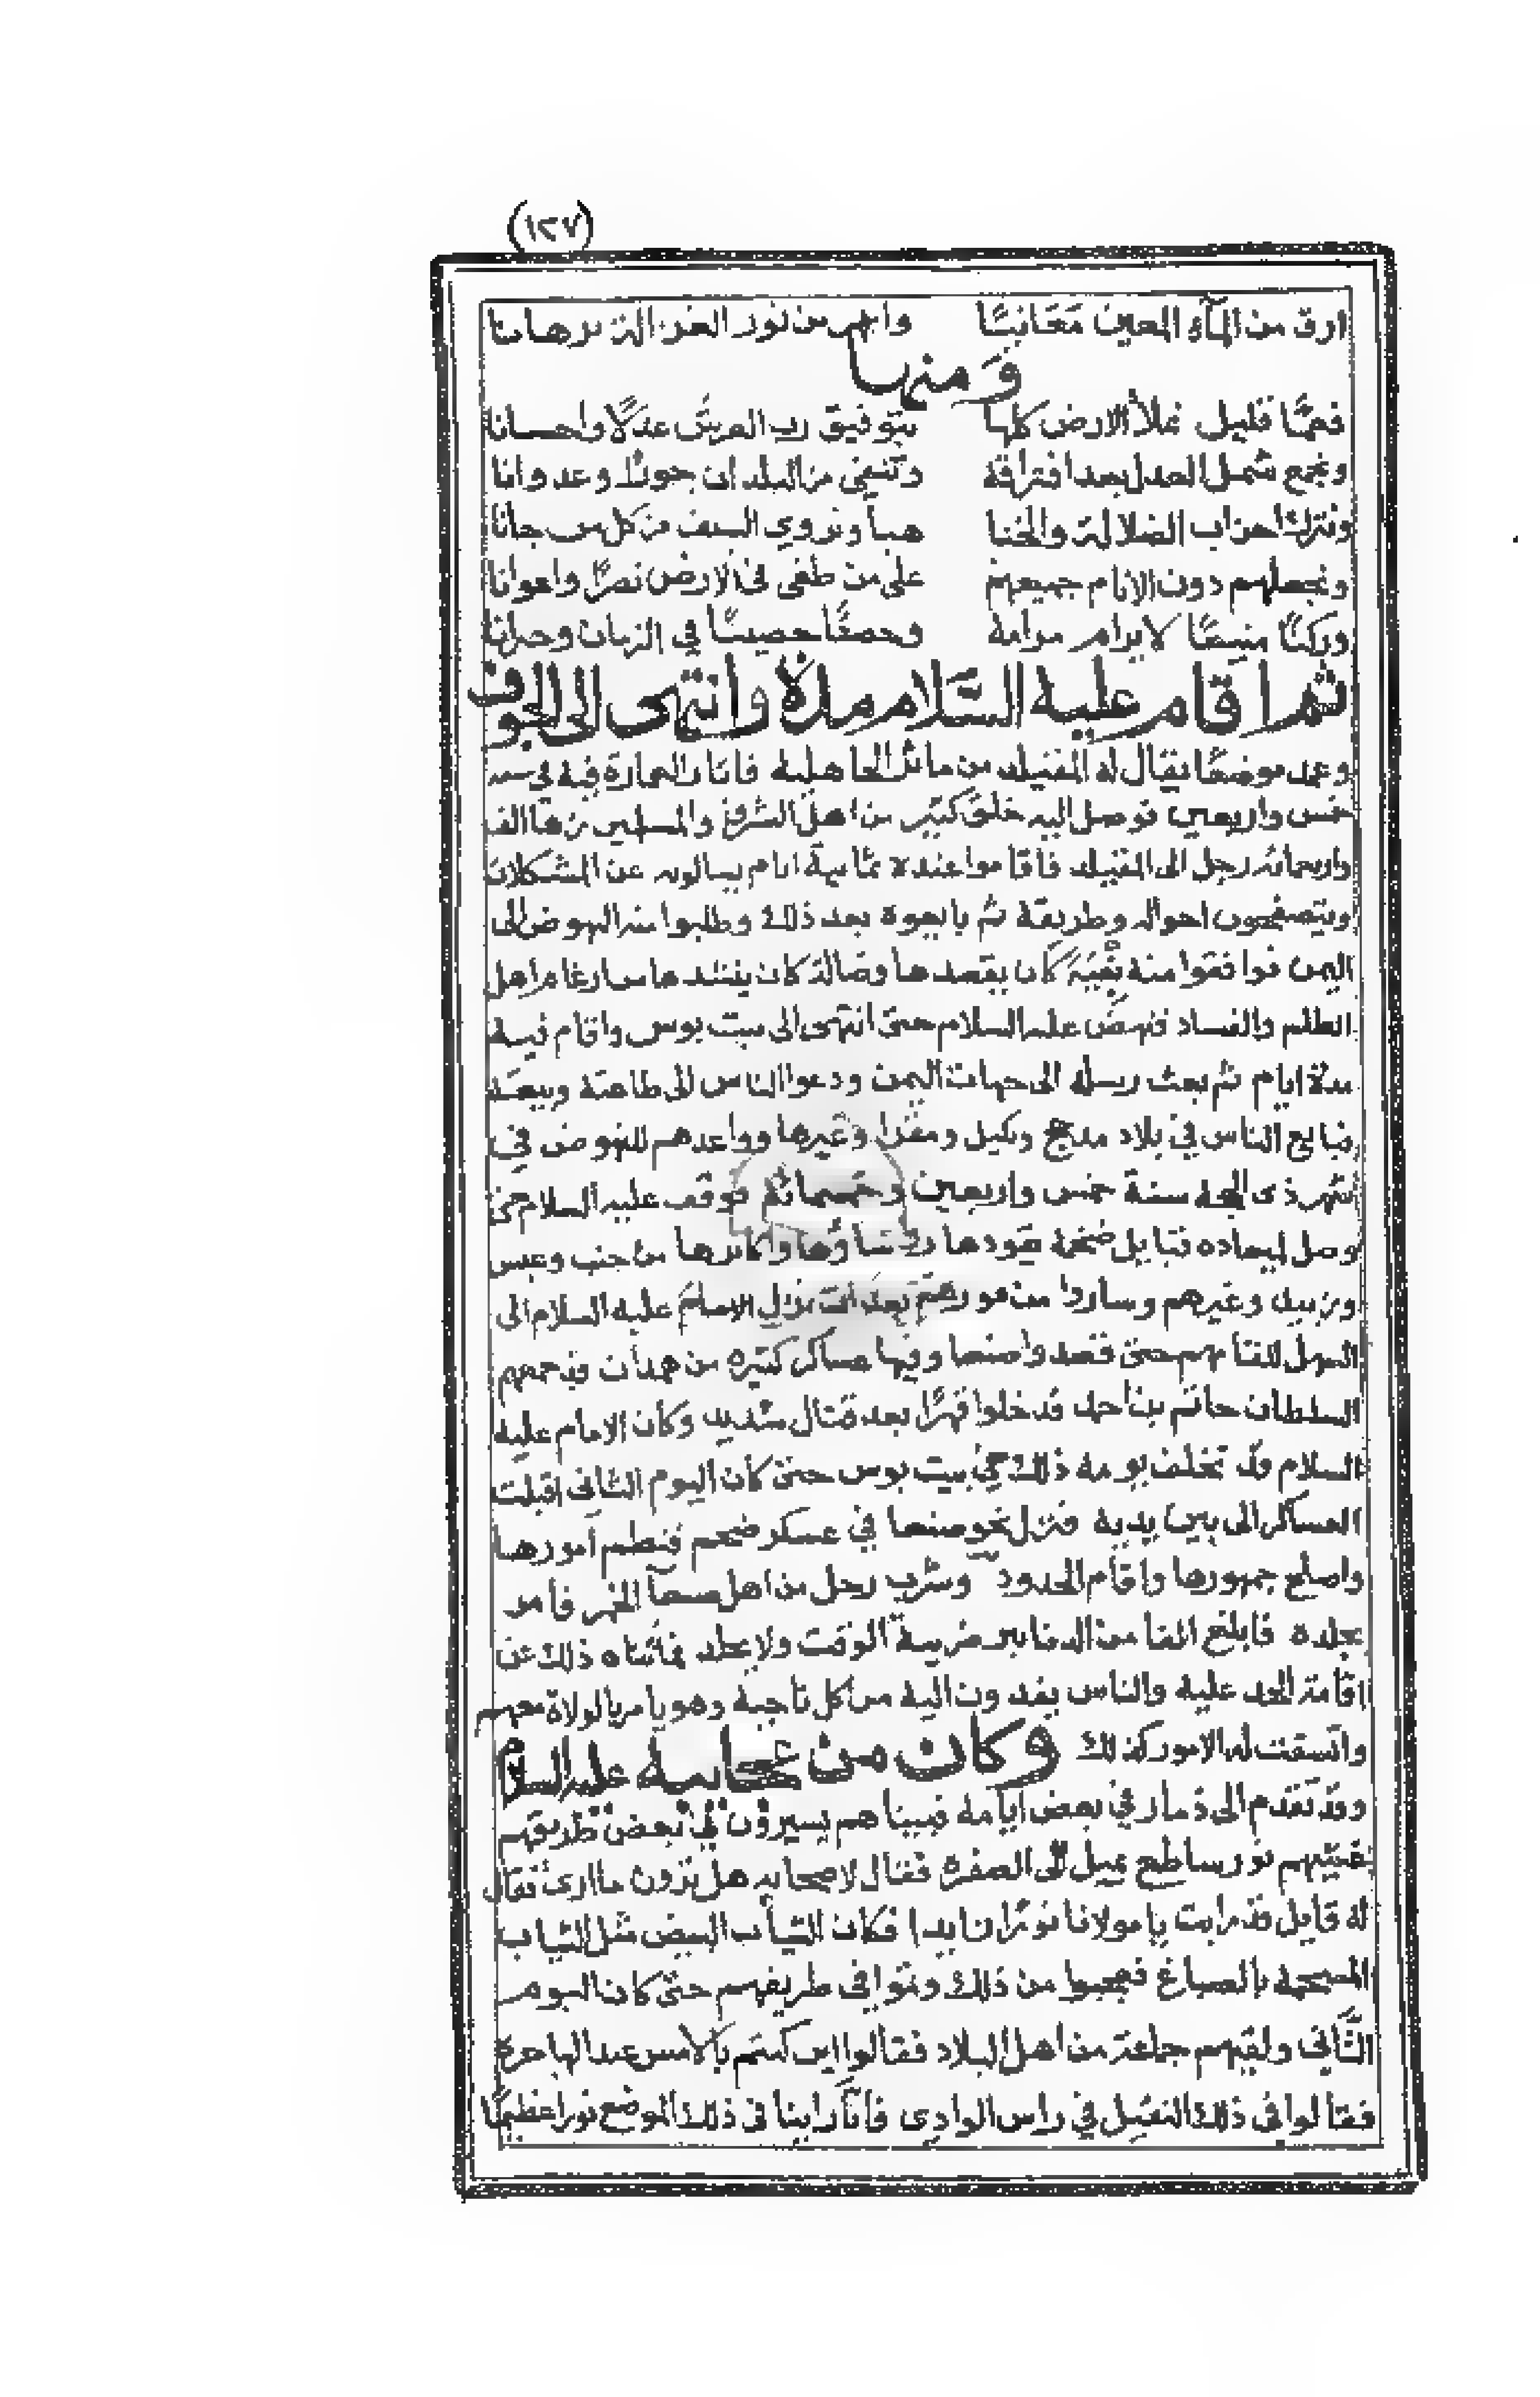 (١٢٧)
ارق من المآء المعين مَعَانيًا واجهر من نور الغزالة برهانا
وَمنها
فعمّا قليل نملأ الارض كلها بتوفيق رب العرش عدلًا واحسانا
ونجمع شمل العدل بعد افتراقه وتنفى من البلدان جورًا وعدوانا
ونترك احزاب الضلالة والخنا هبآ ونروي السيف من كل من جانا
ونجعلهم دون الانام جميعهم على من طغى في الارض نصرًا واعوانا
وركنًا منيعًا لا يرام مرامه وحصنًا حصينًا في الزمان وجرانا
ثم اقام عليه السَّلام مدة وانتهى الى الجوف
وعمد موضعًا يقال له المغنيك من ماثر الجاهلية فاثار العمارة فيه في سنه
خمس واربعين فوصل اليه خلق كثير من اهل الشرق والمسلمين من هآ الف
واربعمائه رجل الى المغنيك فاقاموا عنده ثمانية ايام يسالونه عن المشكلات
ويتصفحون احواله وطريقة ثم بايعوه بعد ذلك وطلبوا منه النهوض الى
اليمن فوافقوا منه بُغْيَةً كان يقصدها وضالة كان ينشدها سارغام اهل
الظلم والفساد فنهض عليه السلام حتى انتهى الى بيت بوس واقام فيه
مدة ايام ثم بعث رسله الى جهات اليمن ودعوا الناس الى طاعته وبيعته
فبايع الناس في بلاد مذحج وبكيل ومقرا وغيرها وواعدهم للنهوض في
شهر ذى الحجه سنة خمس واربعين وخمسمائه فوقف عليه السلام حتى
وصل لميعاده قبايل ضخمة يقودها رؤساؤها واكابرها من جنب وعنس
وزبيد وغيرهم وساروا من فورهم بعد ان نزل الامام عليه السلام الى
السهل للقائهم حتى قصدوا صنعا وفيها عساكر كثيره من همدان قد جمعهم
السلطان حاتم بن احمد فدخلوا قهرًا بعد قتال شديد وكان الامام عليه
السلام قد تخلف يومه ذلك في بيت بوس حتى كان اليوم الثاني اقبلت
العساكر الى بين يديه فنزل نحو صنعا في عسكر ضخم فنظم امورها
واصلح جمهورها واقام الحدود وشرب رجل من اهل صنعآ الخمر فأمر
بجلده فابلغ الفا من الدنانير ضريبة الوقت ولا يجلد فما ثناه ذلك عن
اقامة الحد عليه والناس يفدون اليه من كل ناحية وهو يامر بالولاة معهم
واتسقت له الامور كذلك وكان من عجايبه عليه السلام
وقد تقدم الى ذمار في بعض ايامه فبيناهم يسيرون في بعض طريقهم
غشيهم نور ساطع يميل الى الصفره فقال لاصحابه هل ترون ما ارى فقال
له قايل قد رايت يا مولانا نورًا زايدا فكان الثياب البيض مثل الثياب
المصبوغة بالصباغ فعجبوا من ذلك ومروا في طريقهم حتى كان اليوم
الثَّاني ولقيهم جماعة من اهل البلاد فقالوا اين كنتم بالامس عند الهاجرة
فقالوا في ذلك النقيل في راس الوادى فانّا راينا في ذلك الموضع نورا عظيمًا